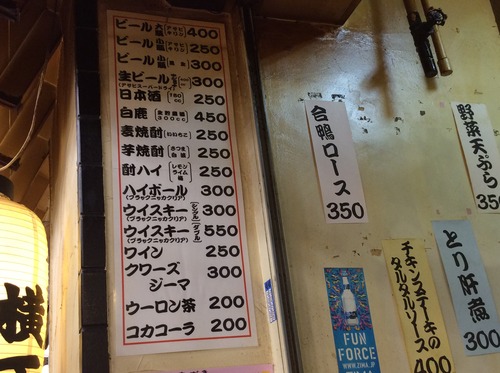 ビール 大瓶 (アサヒ キリン) 400
ビール 小瓶 (アサヒ キリン) 250
ビール 小瓶 300
生ビール 300
(アサヒスーパードライ)
日本酒 (180cc) 250
白鹿 (300cc) 450
麦焼酎 250
芋焼酎 (さつま白波) 250
酎ハイ (レモン ライム) 250
ハイボール 300
(ブラックニッカクリア)
ウイスキー (シングル) 300
(ブラックニッカクリア)
ウイスキー (ダブル) 550
(ブラックニッカクリア)
ワイン 250
クワーズ 300
ジーマ
ウーロン茶 200
コカコーラ 200
合鴨ロース 350
野菜天ぷら 350
チキンステーキの
タルタルソース 400
とり肝煮 300
FUN
FORCE
WWW.ZIMA.JP
横